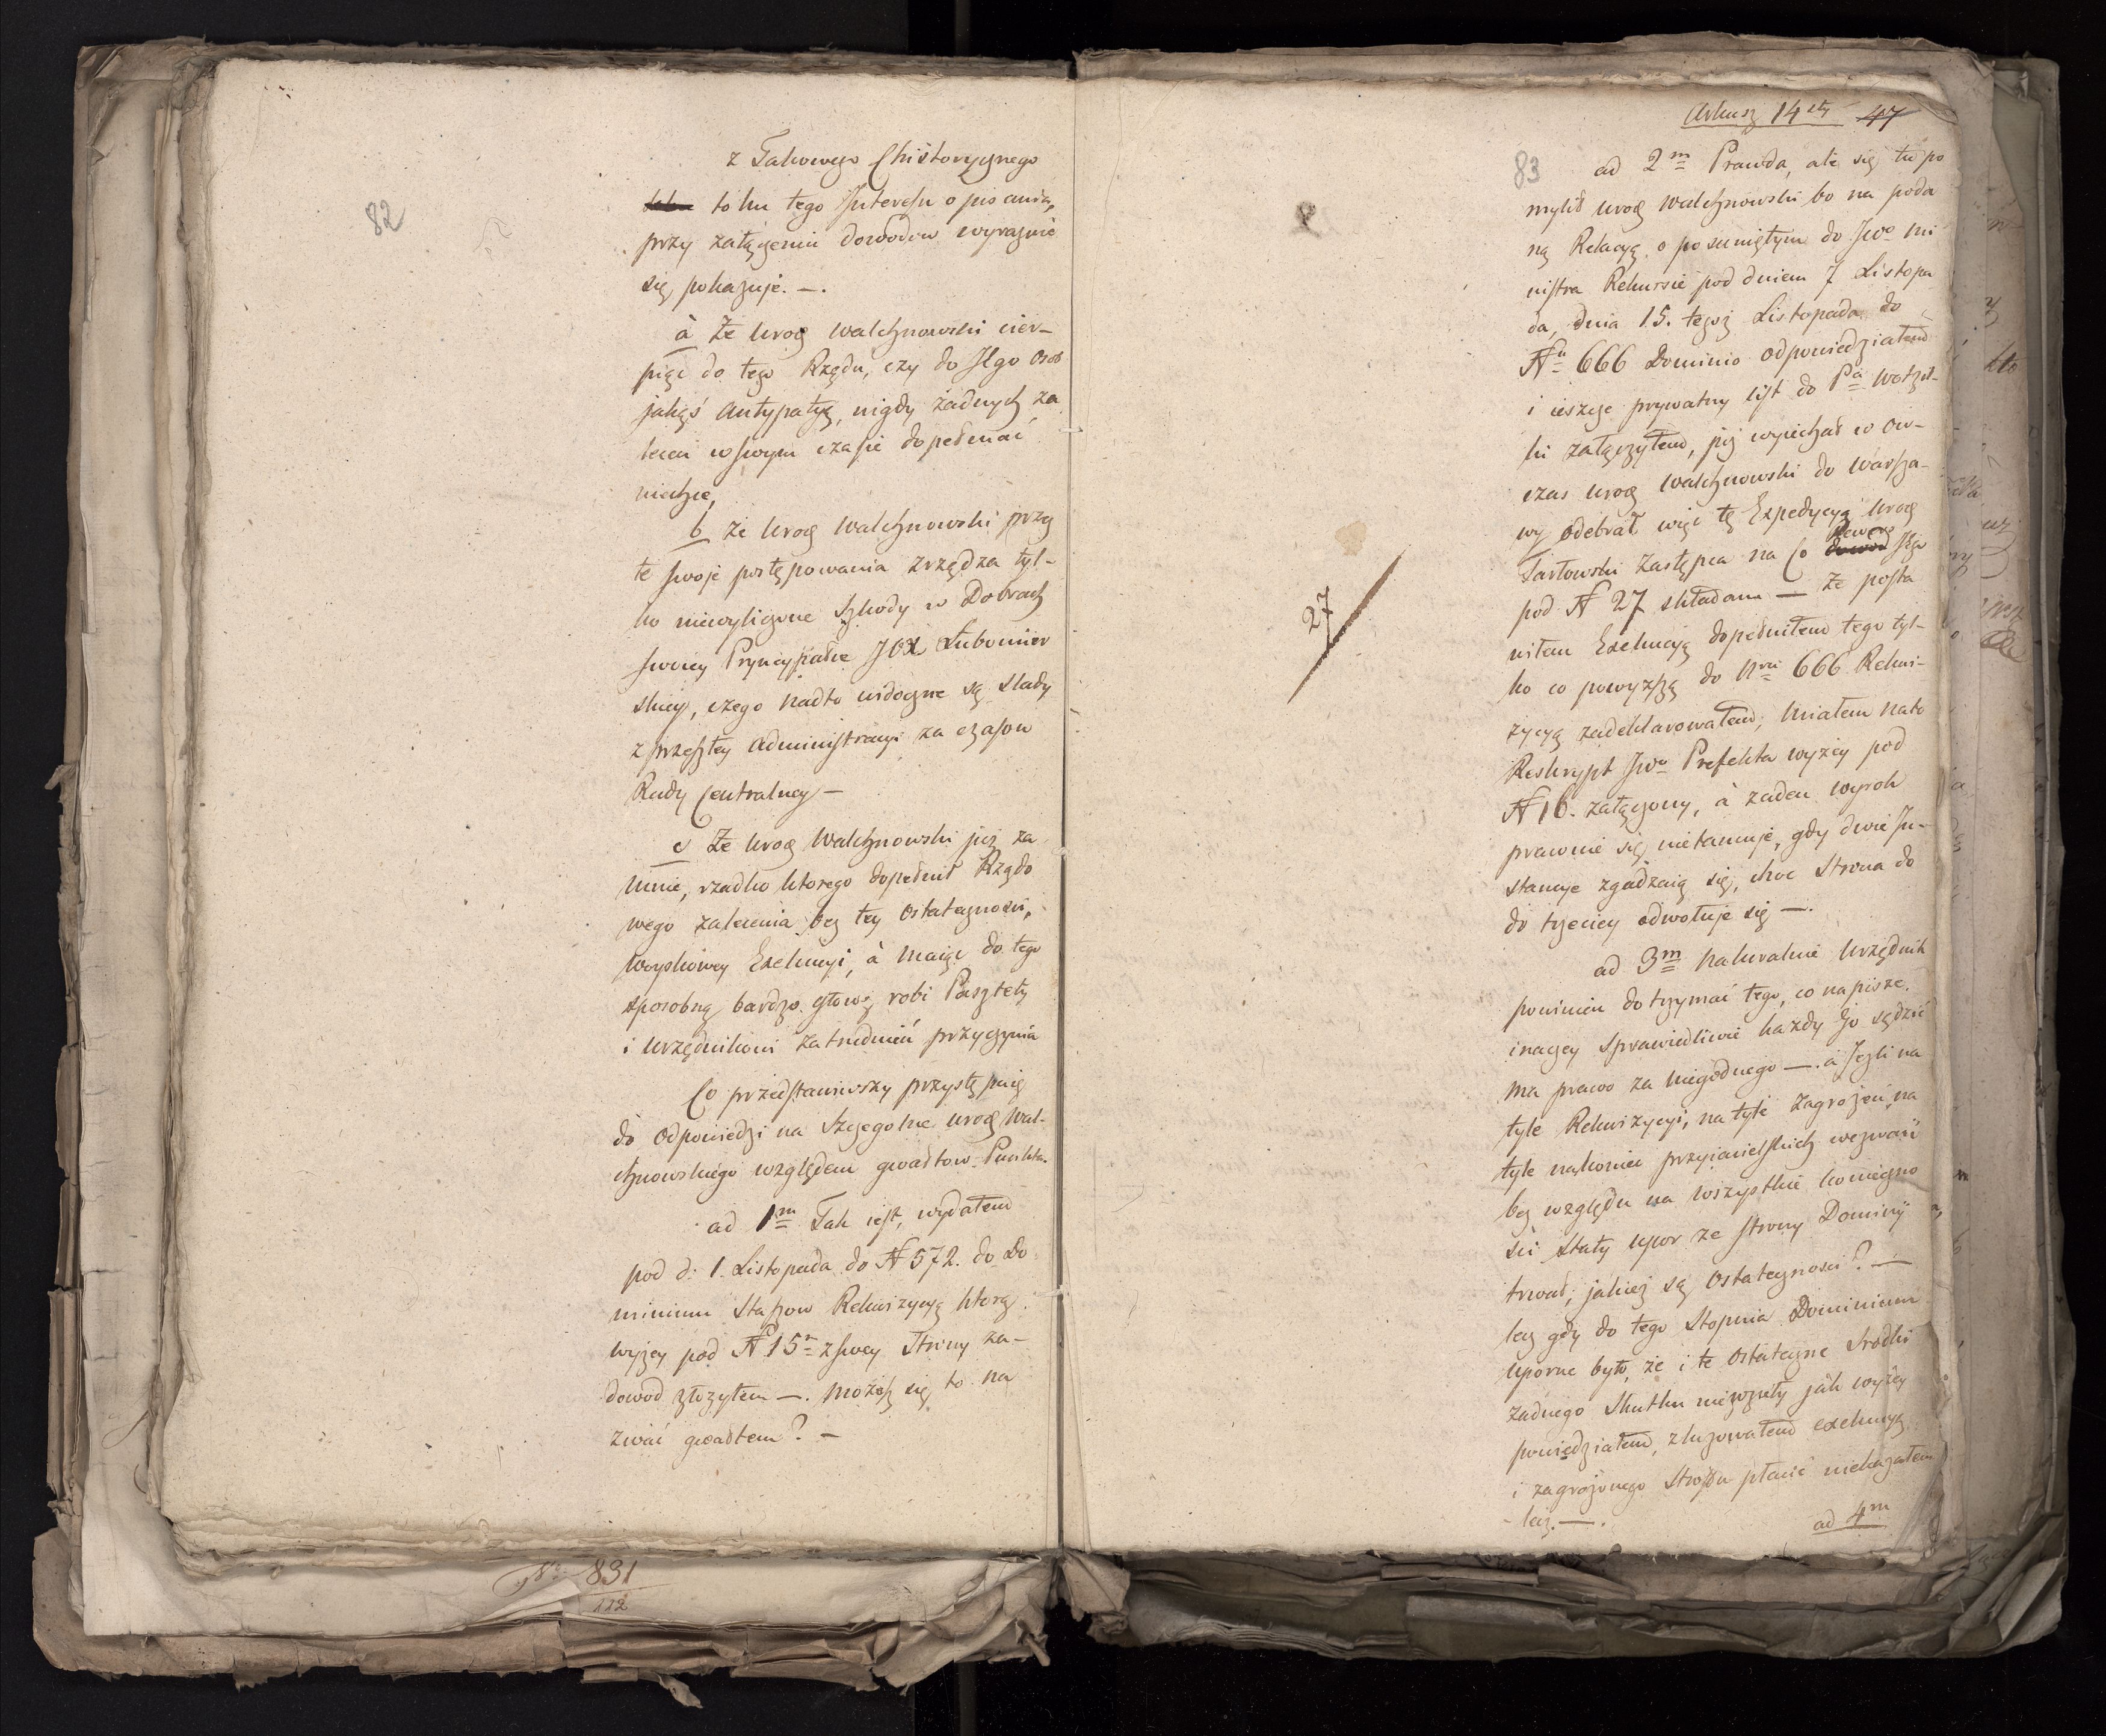 82
z Takowego Chistorycznego
toku tego Interessu opisania,
przy załączeniu dowodow wyraznie
się pokazuje. —.
à Że Uro͞g Walchnowski cier-
piąc do tego Rządu, czy do Jego Osob
jakąś Antypatyą, nigdy żadnych za
leceń w swym czasie dopełniać
niechce,
b że Uro͞g Walchnowski przez
te swoje postępowania zrządza tyl-
ko niewyliczone Szkody w Dobrach
swoiey Pryncypałce JOX Lubomier
skiey, czego nadto widoczne są slady
z przeszłey Administracyi za czasow
Rady Centralney —
c Że Uro͞g Walchnowski już za
mnie, rzadko ktorego dopełnił Rządo
wego zalecenia bez tey ostateczności,
woyskowey Exekucyi, à maiąc do tego
sposobną bardzo głowę robi Pasztety
i Urzędnikowi zatrudnień przyczynia
Co przedstawiwszy przystępuię
do odpowiedzi na Szczegolne Uro͞g Wal-
chnowskiego względem gwałtow Punkta.
ad 1m Tak iest, wydałem
pod d: 1. Listopada do N 572. do Do
minium Staszow Rekwizycyą ktorą
wyżey pod N 15 z swey Strony za-
dowod złożyłem —. możesz się to na
zwać gwałtem? —
No 831
112
Arkusz 14ty 47
83
ad 2m Prawda, ale się tu po
mylił Uro͞g Walchnowski bo na poda
ną Relacyą o posuniętym do JWo Mi
nistra Rekursie pod dniem 7 Listopa
da, dnia 15. tegoż Listopada do
Nu 666 Dominio odpowiedziałem
i ieszcze prywatny list do Pa Walchno-
ski załączyłem, już wyiechał w ow-
czas Uro͞g Walchnowski do Warsza-
wy odebrał więc tę Expedycyą Uro͞g
Tarłowski Zastępca na Co Rewers Jego
pod N 27 składam — Że posta
nitem Exekucyą dopełniłem tego tyl-
ko co powyższą do Nru 666 Rekwi-
zycyą zadeklarowałem, miałem nato
Reskrypt JWo Prefekta wyżey pod
N 16. załączony, à żaden wyrok
prawnie się nietamuje, gdy dwie In-
stancye zgadzaią się, choc Strona do
do trzeciey odwołuje się —.
27
ad 3m naturalnie Urzędnik
powinien dotrzymać tego, co napisze,
inaczey sprawiedliwie każdy Go sądzić
ma prawo za niegodnego —. à Jeżli na
tyle Rekwizycyi, na tyle zagrożeń, na
tyle nakoniec przyiacielskich wezwań
bez względu na wszystkie konieczno
ści stały upor ze strony Dominij
trwał, jakież są ostateczności? —
lecz gdy do tego Stopnia Dominium
uporne było, że i te ostateczne Srodki
żadnego Skutku niewzięły jak wyżey
powiedziałem, zluzowałem exekucyą
i zagrożonego Strofu płacić niekazałem
lecz. —.
ad 4m